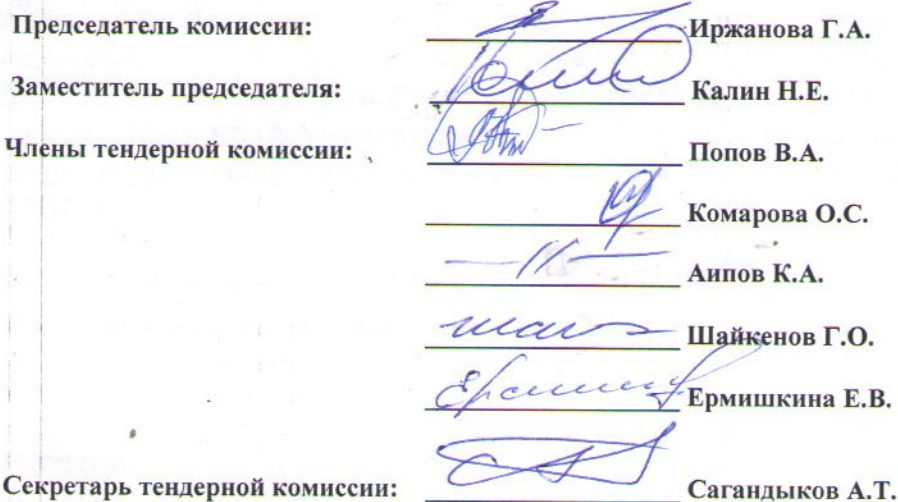 Председатель комиссии: Иржанова Г.А.
Заместитель председателя: Калин Н.Е.
Члены тендерной комиссии: Попов В.А.
Комарова О.С.
Аипов К.А.
Шайкенов Г.О.
Ермишкина Е.В.
Секретарь тендерной комиссии: Сагандыков А.Т.